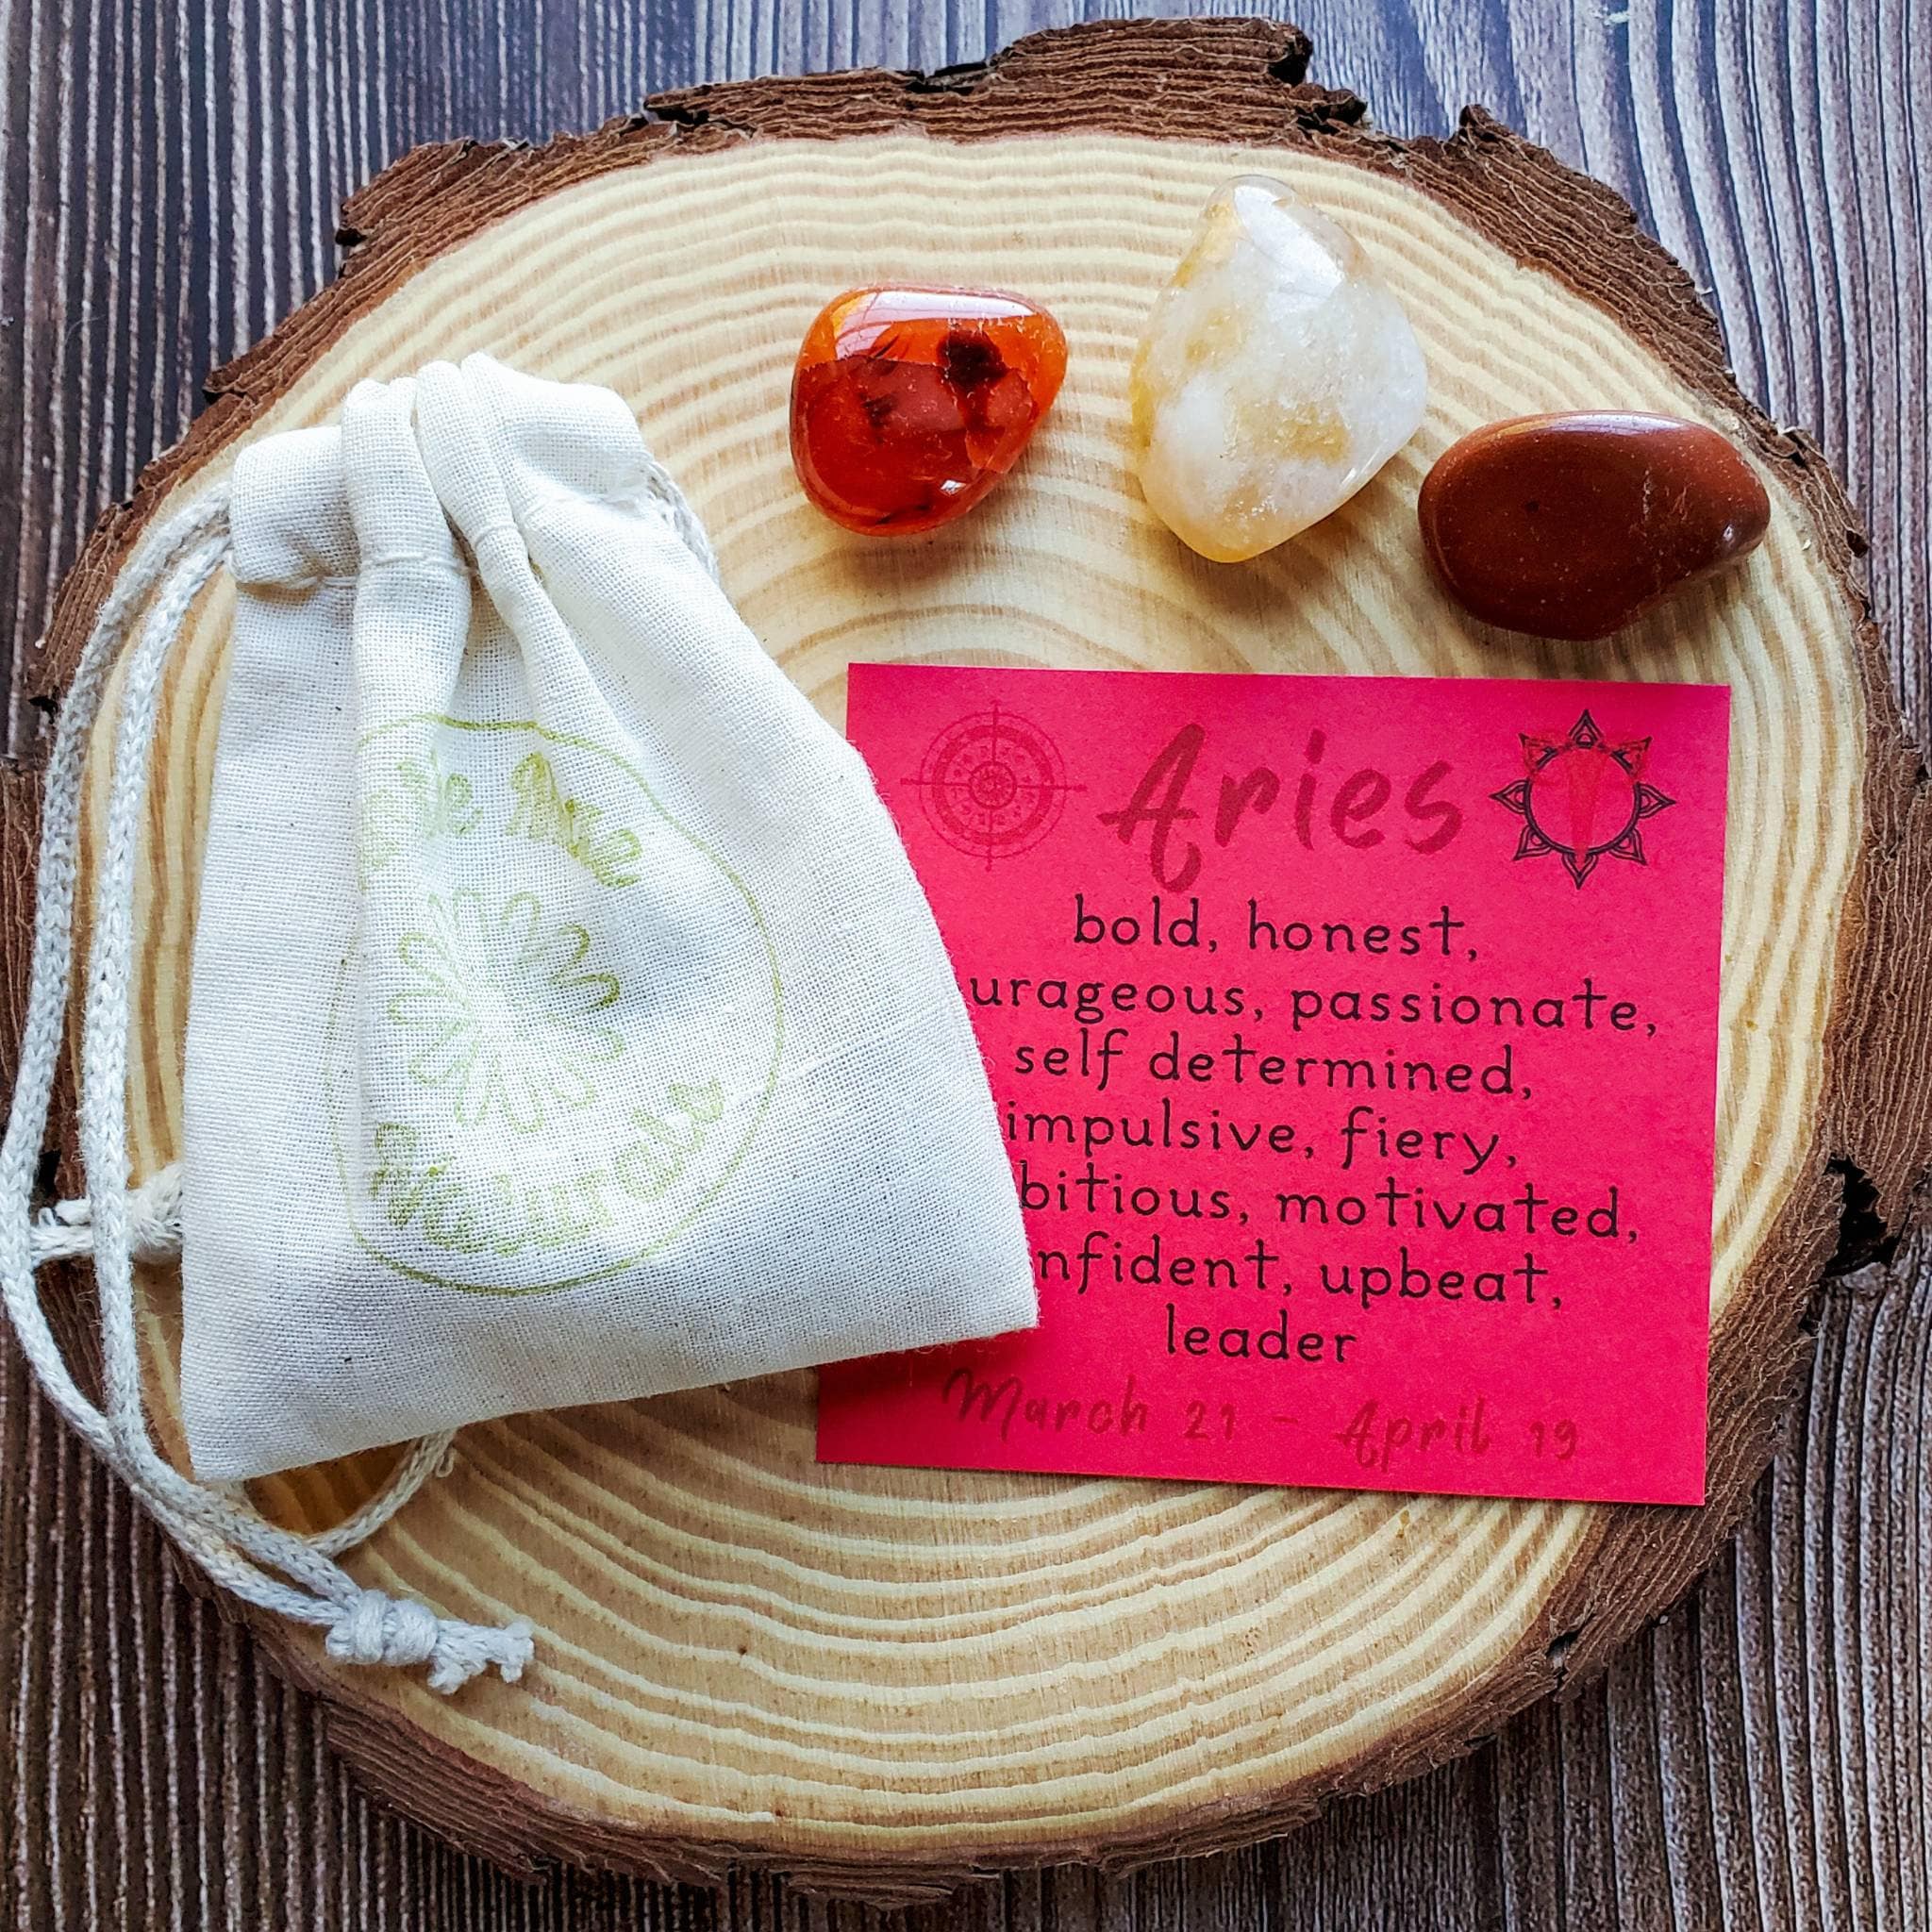 Aries
bold, honest,
urageous, passionate,
self determined,
impulsive, fiery,
bitious, motivated,
nfident, upbeat,
leader
March 21 - April 19